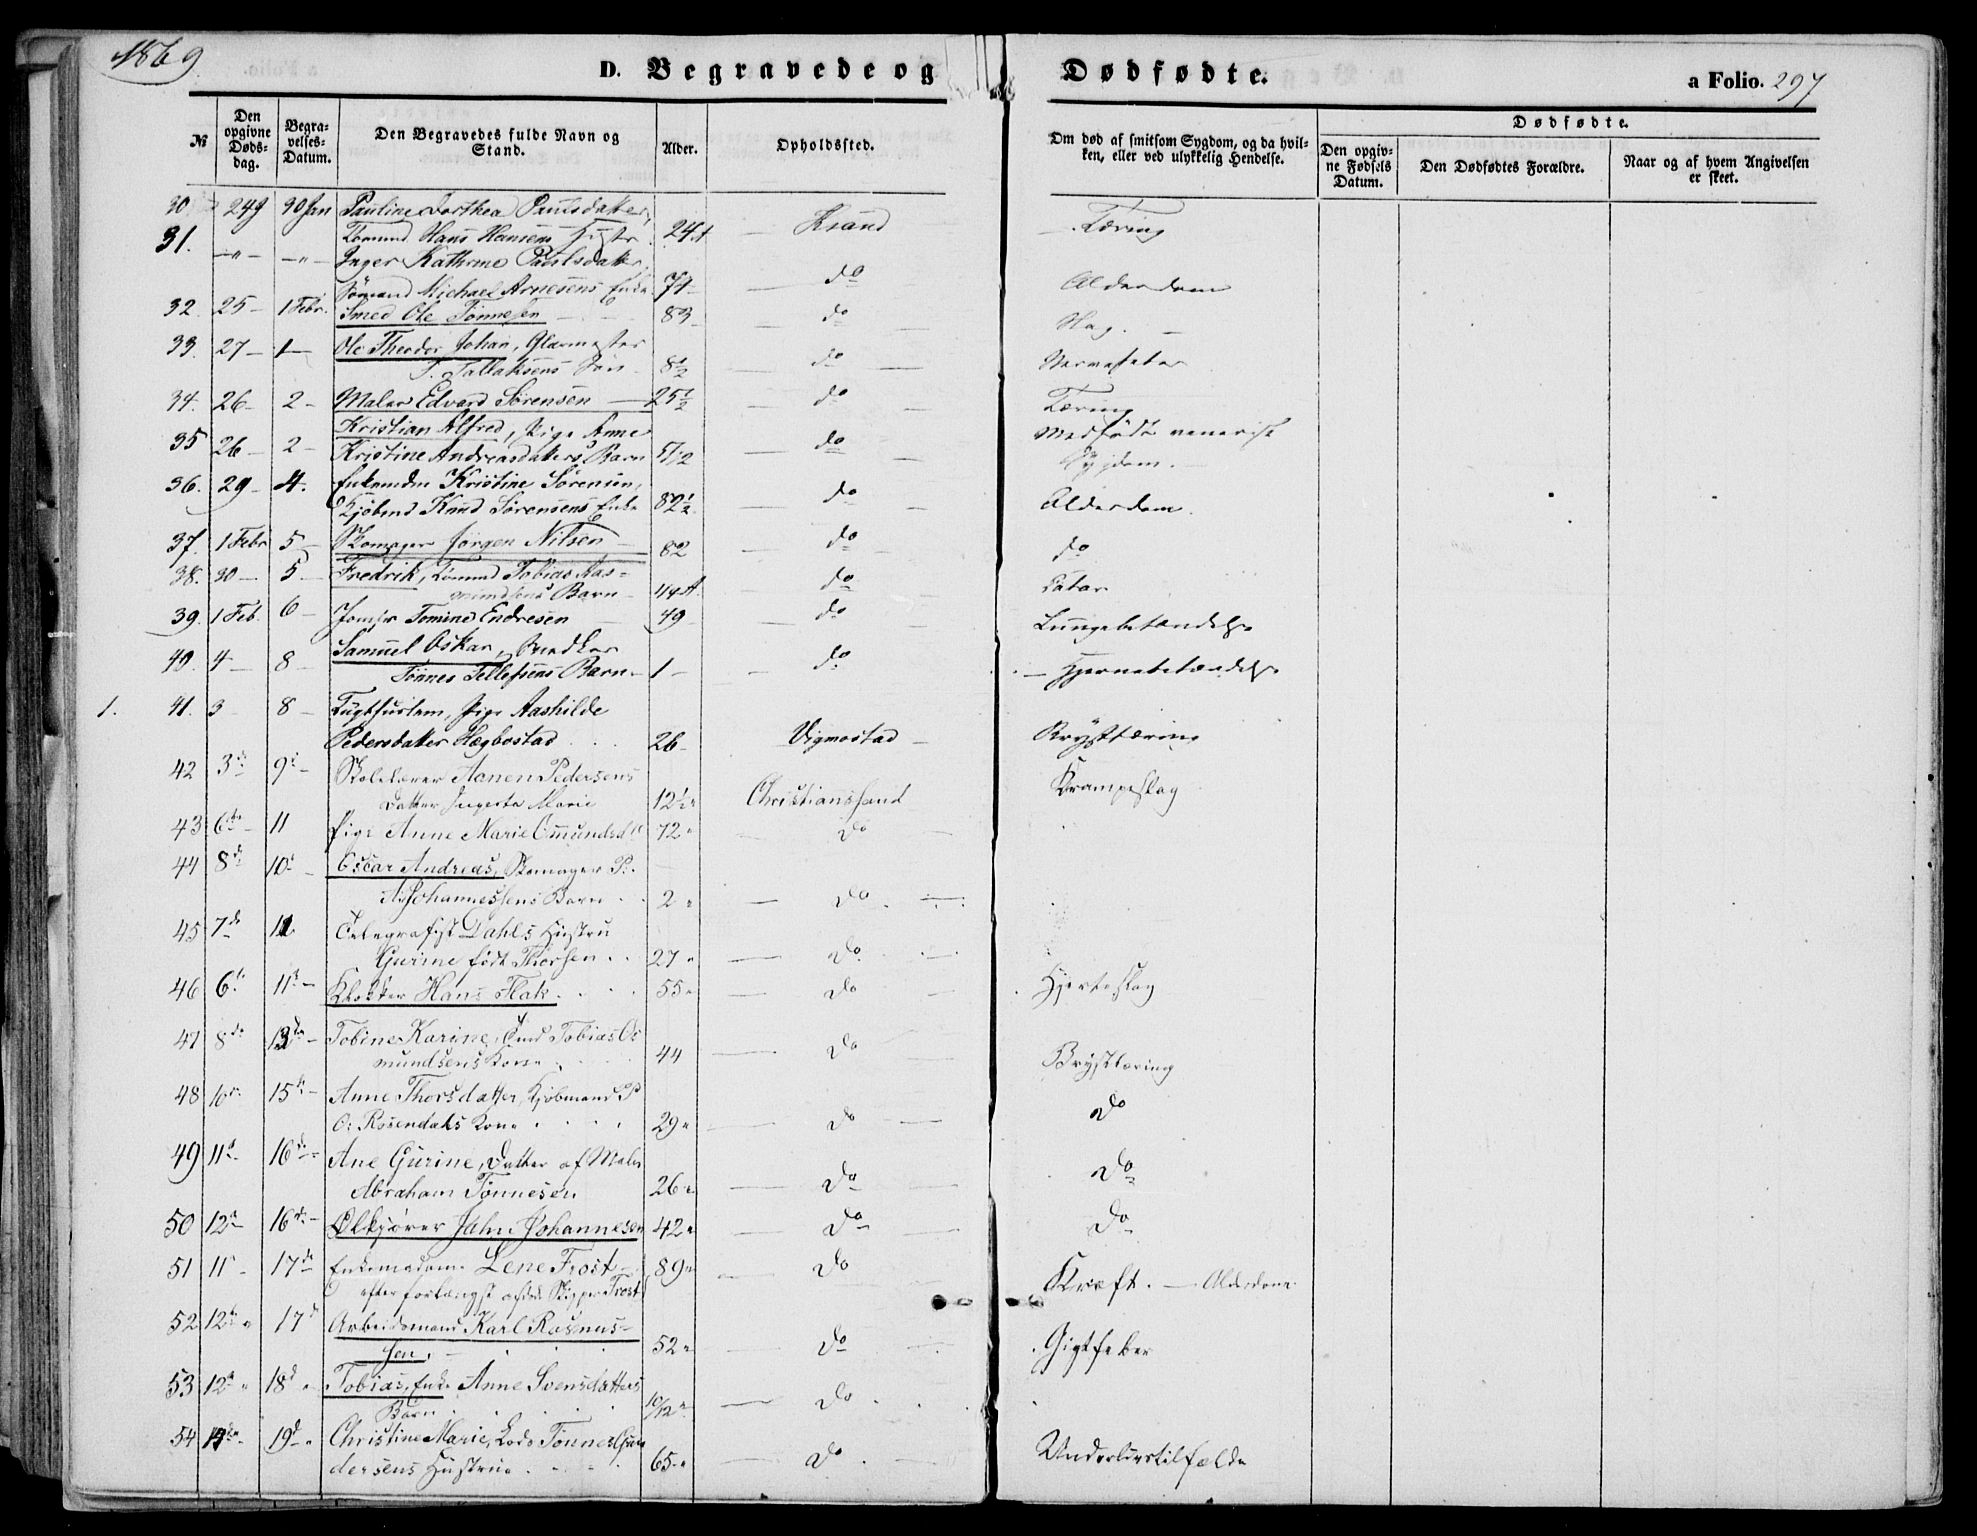 1869
D. Begravede og Dødfødte. a Folio. 297
№ Den opgivne Døds-dag. Begra-velses-Datum. Den Begravedes fulde Navn og Stand. Alder. Opholdssted. Om død af smitsom Sygdom, og da hvil-ken, eller ved ulykkelig Hendelse. Dødfødte. Den opgiv-ne Fødsels Datum. Den Dødfødtes Forældre. Naar og af hvem Angivelsen er skeet.
30 24 J 30 Jan Pauline Dorthea Paulsdatter,
Tømmd Hans Hansens Hustr 24 A — Krsand — Tæring
31. —"— —"— Inger Kathrine Paulsdatter,
Sømand Michael Arnesens Enke 74 — do Alderdom
32. 25 — 1 Febr. Smed Ole Tønnesen — 83 — do — Slag. —
33. 27 — 1 — Ole Theodor Johan, Glarmester
T. Tallaksens Søn 8½ — do — Nervefeber
34. 26 — 2 — Maler Edvard Sørensen — 25½ — do — Tæring
35 26 — 2 — Kristian Alfred, Pige Anne
Kristine Andreasdatters Barn 5/12 — do — Medfødt venerisk
Sygdom. —
36. 29 — 4. Enkemdm Kristine Sørensen,
Kjøbmd Knud Sørensens Enke 82½ — do Alderdom.
37. 1 Febr 5 — Skomager Jørgen Nilsen 82 — do — do
38. 30 — 5 — Fredrik, Tømmd Tobias Aas-
mundsens Barn — do — Catar
39. 1 Feb. 6 — Jomfr Tomine Endresen 49 — do — Lungebetændelse
40. 4 — 8 — Samuel Oskar, Snedker
Tønnes Tellefsens Barn — 1 — — do — Hjernebetændelse
1. 41. 3 — 8 — Tugthuslem, Pige Aashilde
Pedersdatter Hægbostad . . . 26 — Vigmostad — Brysttæring
42 3de 9de — Skolelærer Aanen Pedersens
Datter Ingerta Marie 12½ " Christianssand Krampeslag
43 6te — 11 Pige Anne Marie Omundsd 72 " — do —
44 8de 10de Oscar Andreas, Skomager P.
A. Johannessens Barn . . 2 " — do . —
45 7de 11 Telegrafist Dahls Hustru
Gurine født Thorsen . . 27 " — do . —
46 6te 11te — Klokker Hans Flak . . . . 55 " — do — . Hjerteslag
47 8de 13de — Tobine Karine, Tmd Tobias Os
mundsens Kone . . . 44 — do — Brysttæring
48 10de 15de — Anne Thorsdatter, Kjøbmand P
O: Rosendals Kone . . . . 29 " — do — do
49 11te 16de — Ane Gurine, Datter af Maler
Abraham Tønnesen 26 " — do — do
50 12te 16de — Ølkjører Jahn Johannesen 42 " — do — do
51 11te — 17de Enkemadame Lene Frost — 89 " — do Kræft. — Alderdom
efter forlængst afdøde Skipper Frost
52 12te " 17de Arbeidsmand Karl Rasmus-
sen, — . . . 52 " — do — . Gigtfeber
53 12te " 18de " Tobias, Enke Anne Svensdatters
Barn . . . . . 10/12 " — do . .
54 14de — 19de " Christine Marie, Lods Tønnes Gun
dersens Hustrue . . . . 65 " — do . — Underlivstilfælde